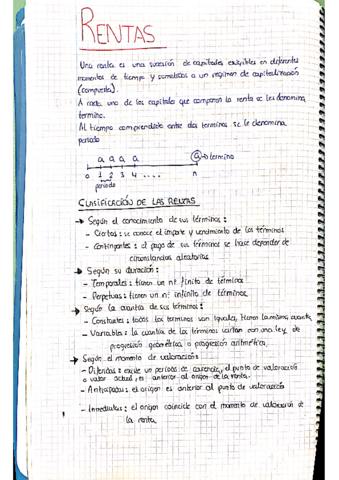 RENTAS
Una renta es una sucesión de capitales exigibles en diferentes
momentos de tiempo y sometidos a un régimen de capitalización
(compuesta).
A cada uno de los capitales que componen la renta se les denomina
término.
Al tiempo comprendido entre dos términos se le denomina
periodo
a a a a a → término
0 1 2 3 4 .... n
periodo
CLASIFICACIÓN DE LAS RENTAS
→ Según el conocimiento de sus términos:
- Ciertas: se conoce el importe y vencimiento de los términos
- Contingentes: el pago de sus términos se hace depender de
circunstancias aleatorias
→ Según su duración:
- Temporales: tienen un nº finito de términos
- Perpetuas: tienen un nº infinito de términos
→ Según la cuantía de sus términos:
- Constantes: todos los términos son iguales, tienen la misma cuantía
- Variables: la cuantía de los términos varían con una ley de
progresión geométrica o progresión aritmética.
→ Según el momento de valoración:
- Diferidas: existe un periodo de carencia, el punto de valoración
o valor actual, es anterior al origen de la renta.
- Anticipadas: el origen es anterior al punto de valoración
- Inmediatas: el origen coincide con el momento de valoración de
la renta.